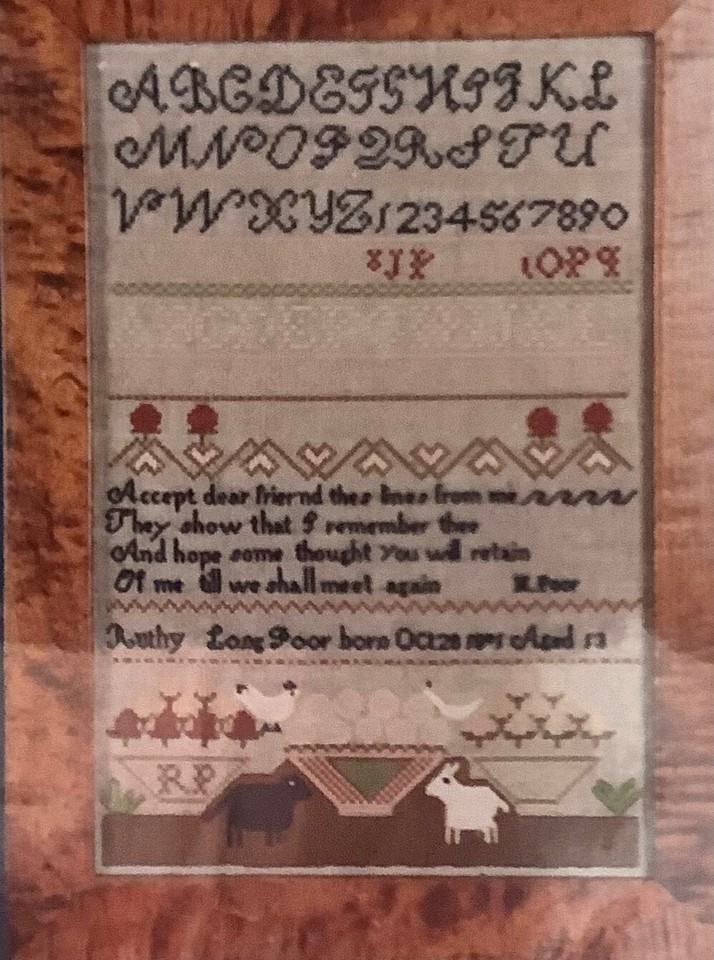 A B C D E F G H I J K L
M N O P Q R S T U
V W X Y Z 1 2 3 4 5 6 7 8 9 0
Accept dear friernd thes lines from me
They show that I remember thee
And hope some thought you will retain
Of me till we shall meet again Poor
Ruthy Long Poor born Oct 28 Aged 13
RP